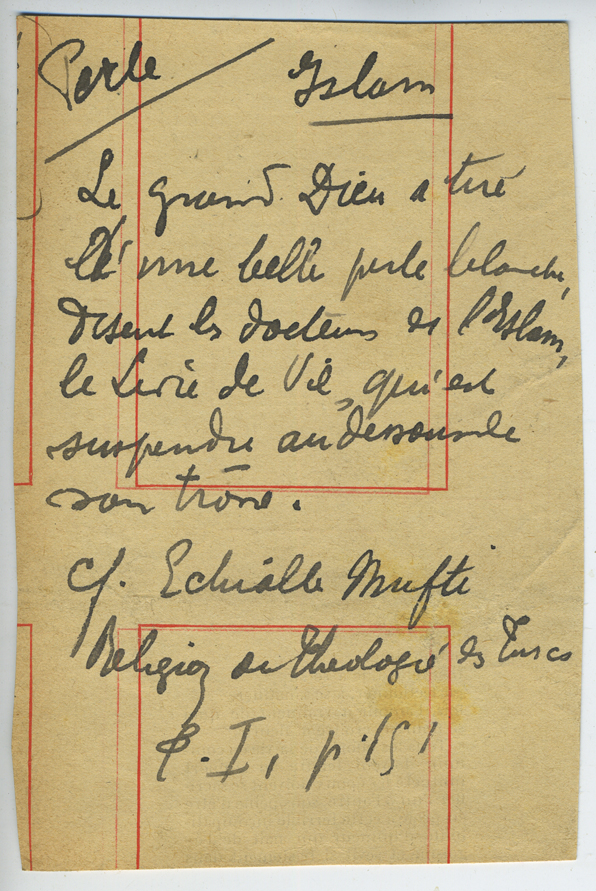 Perle Islam
Le grand Dieu a tiré
d'une belle perle blanche,
disent les docteurs de l'Islam,
le Livre de Vie, qui est
suspendre au dessous de
son trône.
Cf. Echialle Mufti
Religion ou theologie des Turcs
t. I, p. 151